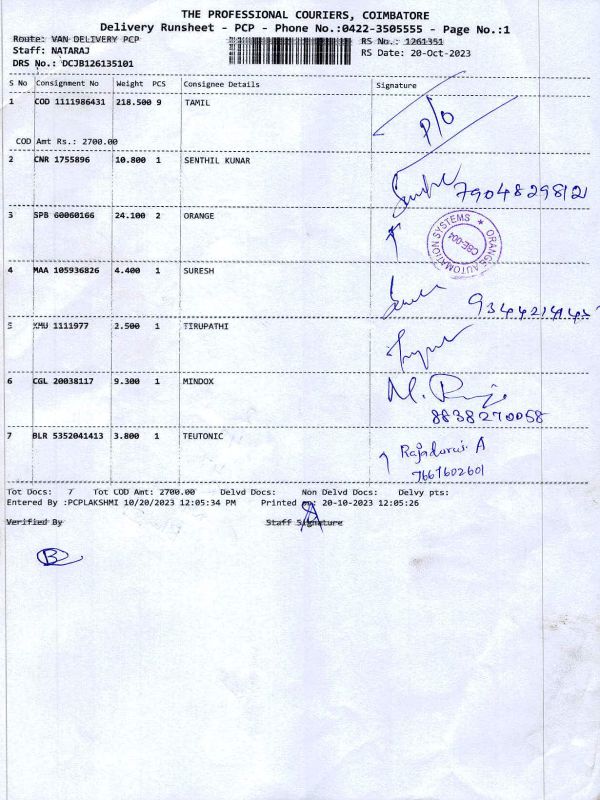 THE PROFESSIONAL COURIERS, COIMBATORE
Delivery Runsheet - PCP - Phone No.:0422-3505555 - Page No.:1
Route: VAN DELIVERY PCP RS No.: 1261351
Staff: NATARAJ RS Date: 20-Oct-2023
DRS No.: DCJB126135101
S No Consignment No Weight PCS Consignee Details Signature
1 COD 1111986431 218.500 9 TAMIL P/O
COD Amt Rs.: 2700.00
2 CNR 1755896 10.800 1 SENTHIL KUNAR
7904829812
3 SPB 60060166 24.100 2 ORANGE
ORANGS AUTOMATION SYSTEMS ★
CBE-004
4 MAA 105936826 4.400 1 SURESH
5 XMU 1111977 2.500 1 TIRUPATHI
6 CGL 20038117 9.300 1 MINDOX
8838270058
7 BLR 5352041413 3.800 1 TEUTONIC
A
7667602601
Tot Docs: 7 Tot COD Amt: 2700.00 Delvd Docs: Non Delvd Docs: Delvy pts:
Entered By :PCPLAKSHMI 10/20/2023 12:05:34 PM Printed on: 20-10-2023 12:05:26
Verified By Staff Signature
B